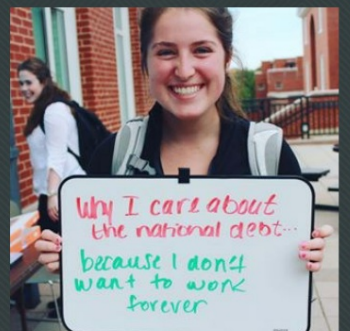 Why I care about
the national debt...
because I don't
want to work
forever